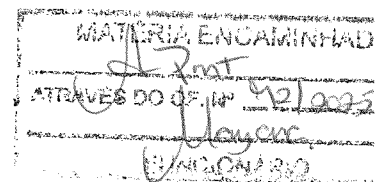 MATÉRIA ENCAMINHAD
A PMT
ATRAVÉS DO OF. Nº 42/2022
FUNCIONÁRIO